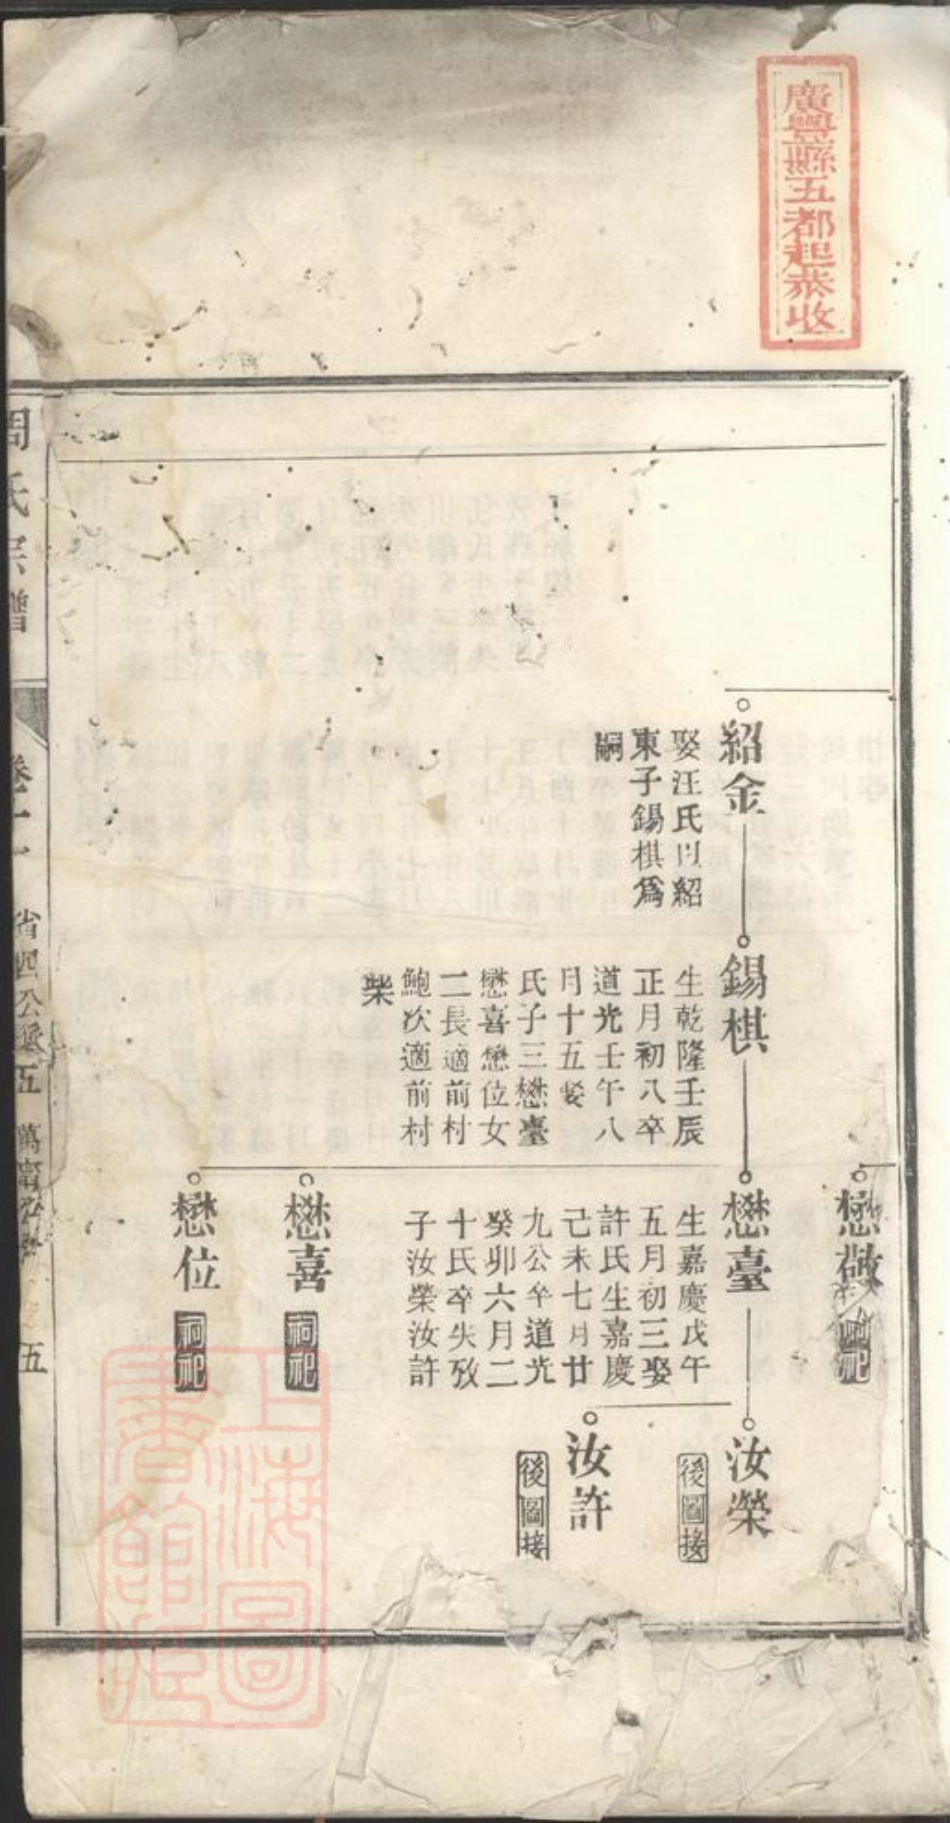 廣豐縣五都起恭收
紹金
娶汪氏以紹
東子錫棋爲
嗣
錫棋
生乾隆壬辰
正月初八卒
道光壬午八
月十五娶
氏子三懋臺
懋喜懋位女
二長適前村
鮑次適前村
柴
懋敬
祠祀
懋臺
生嘉慶戊午
五月初三娶
許氏生嘉慶
己未七月廿
九公卒道光
癸卯六月二
十氏卒失攷
子汝榮汝許
懋喜
祠祀
懋位
祠祀
汝榮
後圖接
汝許
後圖接
周氏宗譜
卷十一
省四公派五
五
上海圖書館藏